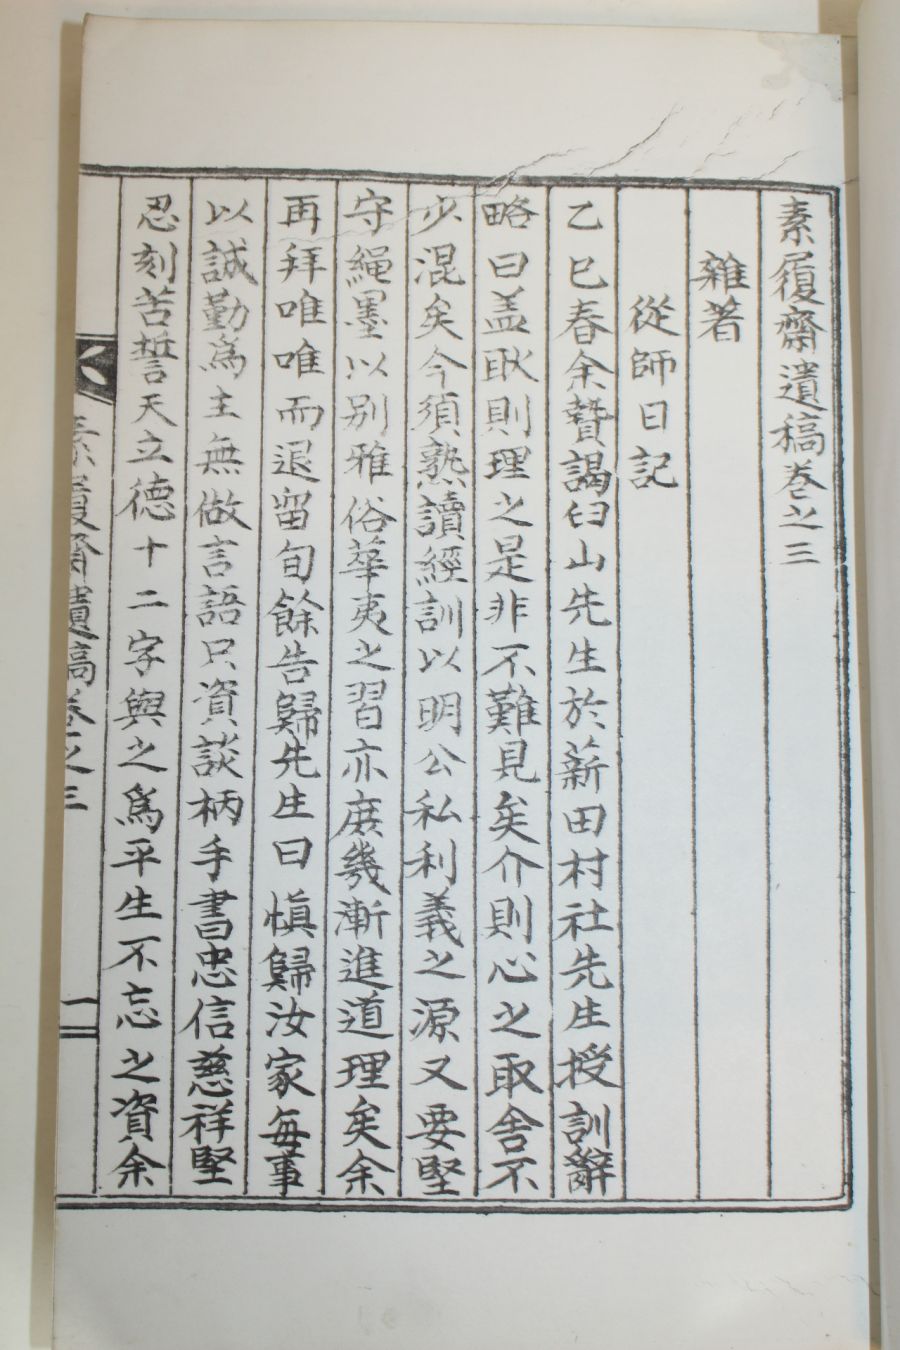 素履齋遺稿卷之三
雜著
從師日記
乙巳春余贄謁臼山先生於薪田村社先生授訓辭
略曰盖耿則理之是非不難見矣介則心之取舍不
少混矣今須熟讀經訓以明公私利義之源又要堅
守繩墨以別雅俗華夷之習亦庶幾漸進道理矣余
再拜唯唯而退留旬餘告歸先生曰愼歸汝家每事
以誠勤爲主無做言語只資談柄手書忠信慈祥堅
忍刻苦誓天立德十二字與之爲平生不忘之資余
素履齋遺稿卷之三
一